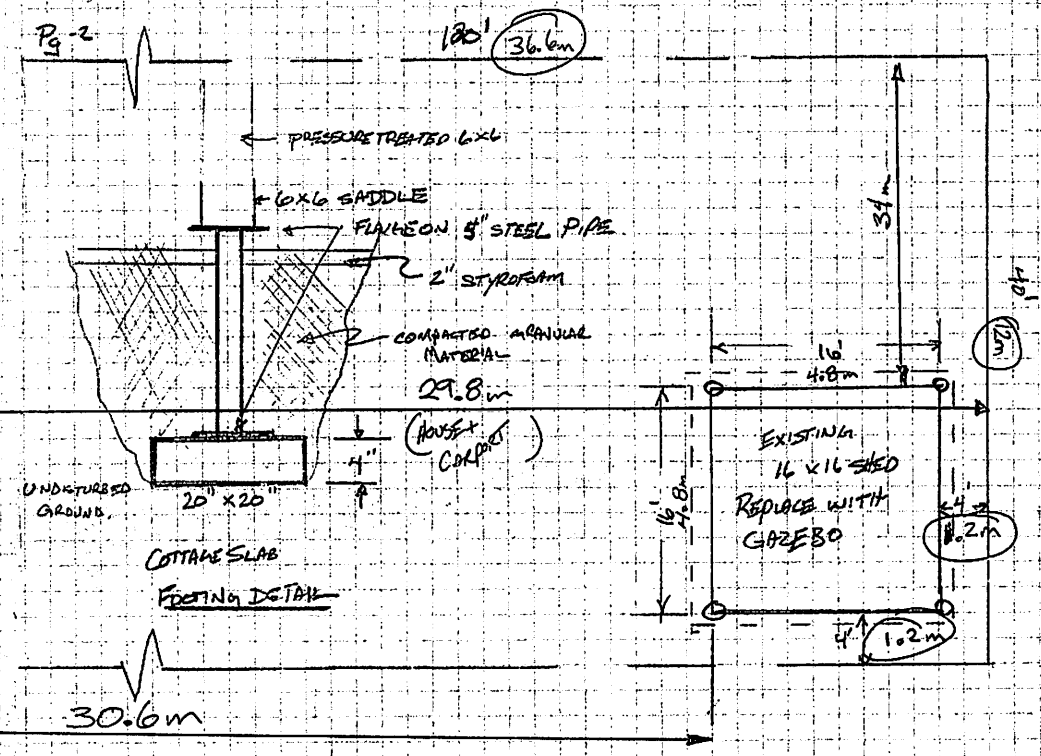 Pg-2
120' 36.6m
PRESSURE TREATED 6x6
6x6 SADDLE
FLANGE ON STEEL PIPE
2" STYROFOAM
COMPACTED GRANULAR
MATERIAL
29.8m
(HOUSE +
CARPORT)
4"
UNDISTURBED
GROUND.
20" x 20"
COTTAGE SLAB
FOOTING DETAIL
30.6m
34m
12m
16
4.8m
16'
4.8m
EXISTING
16 x 16 SHED
REPLACE WITH
GAZEBO
4'
1.2m
4'
1.2m